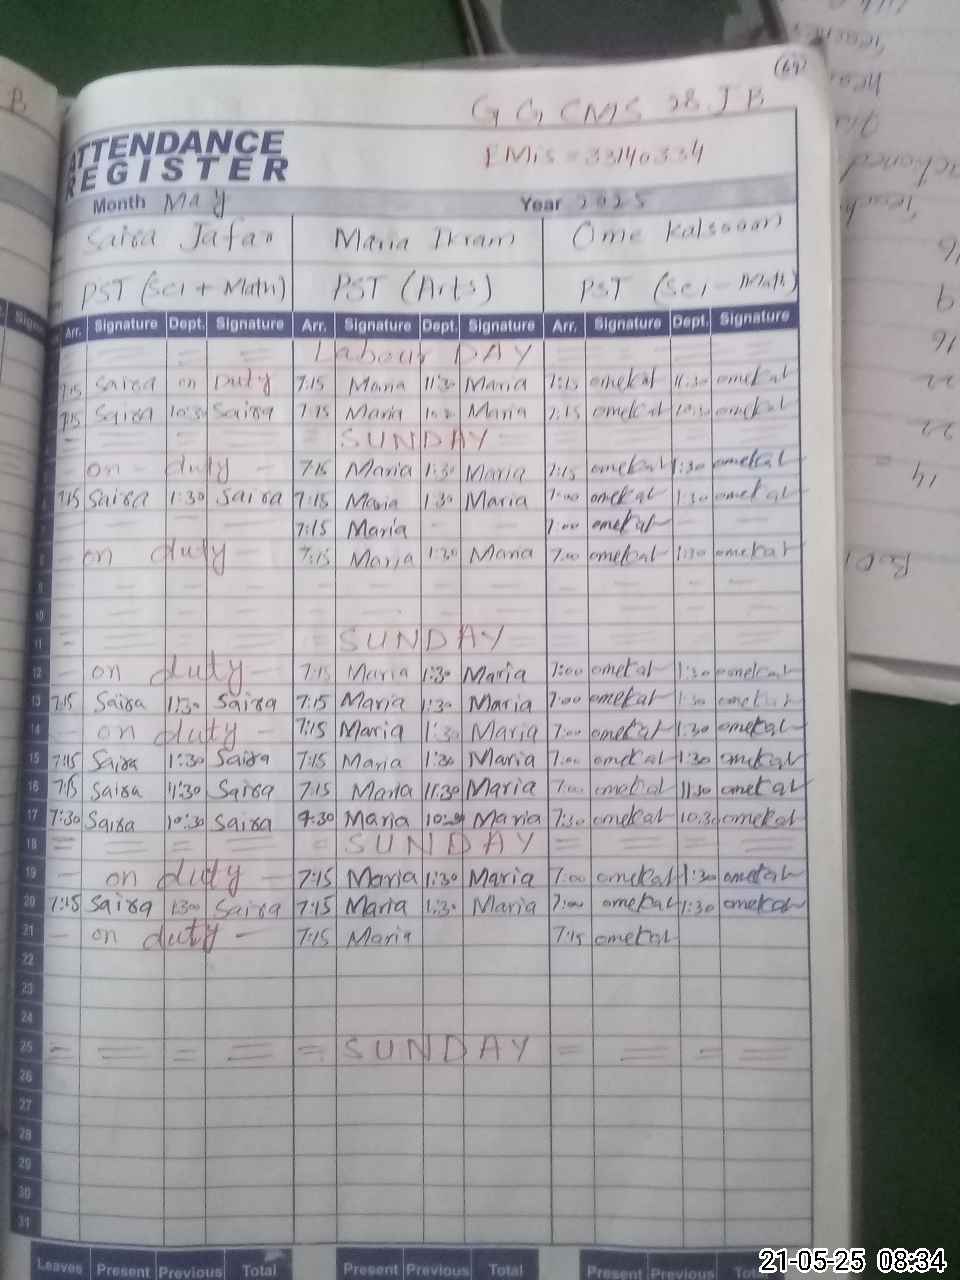 (64)
G G CMS 28 J B
ATTENDANCE
REGISTER
EMis = 33140334
Month May Year 2025
Saira Jafar Maria Ikram Ome Kalsoom
PST (Sci + Math) PST (Arts) PST (Sci - Math)
Arr. Signature Dept. Signature Arr. Signature Dept. Signature Arr. Signature Dept. Signature
Labour DAY
7:15 Saira on Duty 7:15 Maria 11:30 Maria 7:15 omekal 11:30 omekal
7:15 Saira 10:30 Saira 7:15 Maria Maria 7:15 omekal 10:30 omekal
SUNDAY
on - duty - 7:15 Maria 1:30 Maria 7:15 omekal 1:30 omekal
7:15 Saira 1:30 Saira 7:15 Maria 1:30 Maria 7:00 omekal 1:30 omekal
7:15 Maria - - 7:00 omekal
8 - on duty - 7:15 Maria 1:30 Maria 7:00 omekal 1:30 omekal
9
10
11 SUNDAY
12 - on duty - 7:15 Maria 1:30 Maria 7:00 omekal 1:30 omekal
13 7:15 Saira 1:30 Saira 7:15 Maria 1:30 Maria 7:00 omekal 1:30 omekal
14 - on duty - 7:15 Maria 1:30 Maria 7:00 omekal 1:30 omekal
15 7:15 Saira 1:30 Saira 7:15 Maria 1:30 Maria 7:00 omekal 1:30 omekal
16 7:15 Saira 11:30 Saira 7:15 Maria 11:30 Maria 7:00 omekal 11:30 omekal
17 7:30 Saira 10:30 Saira Maria 10:30 Maria 7:30 omekal 10:30 omekal
18 = = = = - SUNDAY = = = =
19 - on duty - 7:15 Maria 1:30 Maria 7:00 omekal 1:30 omekal
20 7:15 Saira 1:30 Saira 7:15 Maria 1:30 Maria 7:00 omekal 1:30 omekal
21 - on duty - 7:15 Maria 7:15 omekal
22
23
24
25 = = = = = SUNDAY = = = =
26
27
28
29
30
31
Leaves Present Previous Total Present Previous Total Present Previous Total
21-05-25 08:34